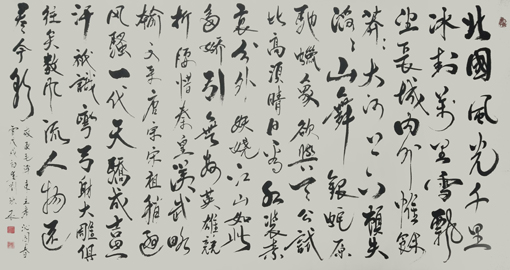 北國風光千里
冰封萬里雪飄
望長城內外惟餘
莽莽大河上下頓失
滔滔山舞銀蛇原
馳蠟象欲與天公試
比高須晴日看紅裝素
裹分外妖嬈江山如此
多嬌引無數英雄競
折腰惜秦皇漢武略
輸文采唐宗宋祖稍遜
風騷一代天驕成吉思
汗祗識彎弓射大雕俱
往矣數風流人物還
看今朝
毛澤東主席沁園春
雪